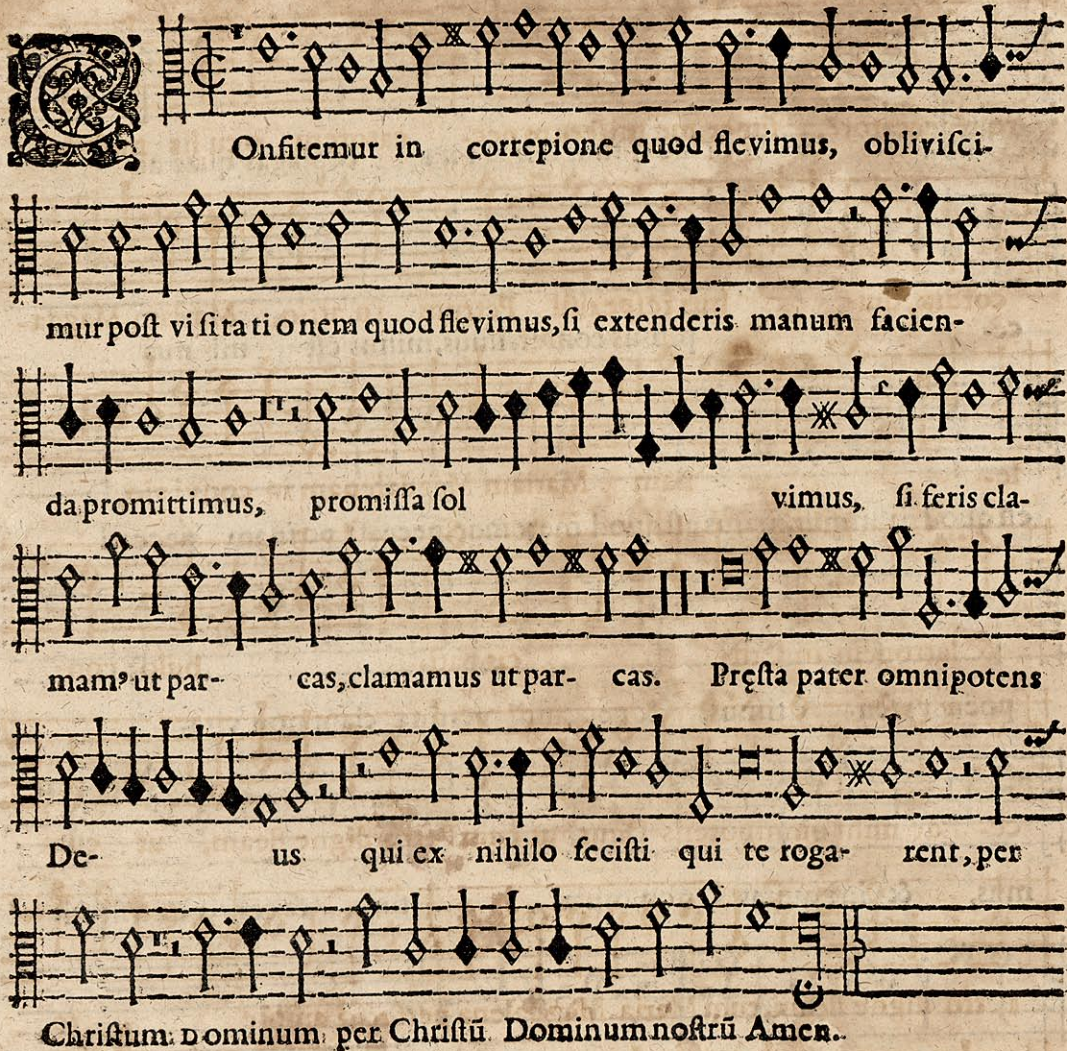 COnfitemur in correpione quod flevimus, obliviſci-
mur poſt viſitationem quod flevimus, ſi extenderis manum facien-
da promittimus, promiſſa ſol vimus, ſi feris cla-
mamꝰ ut par- cas, clamamus ut par- cas. Pręſta pater omnipotens
De- us qui ex nihilo feciſti qui te roga- rent, per
Chriſtum Dominum per Chriſtū Dominum noſtrū Amen.